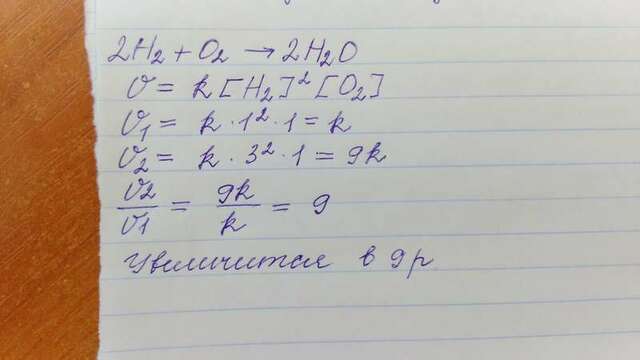 2H₂ + O₂ → 2H₂O
v = k [H₂]² [O₂]
v₁ = k · 1² · 1 = k
v₂ = k · 3² · 1 = 9k
v₂/v₁ = 9k/k = 9
Увеличится в 9 р